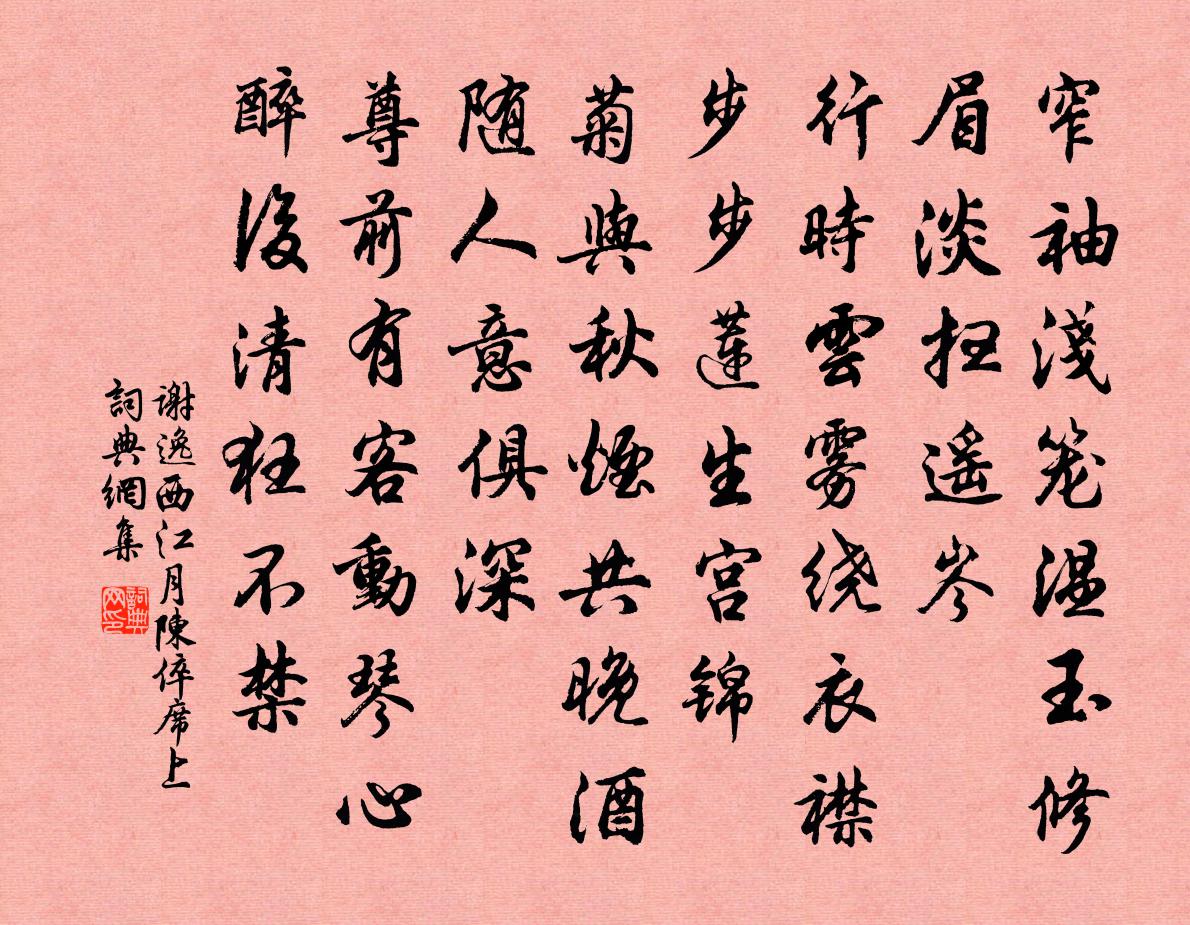 窄袖淺笼温玉修
眉淡扫遥岑
行時雲雾绕衣襟
步步莲生宫锦
菊與秋煙共晚酒
随人意俱深
尊前有客動琴心
醉後清狂不禁
谢逸西江月陳倅席上
詞典網集
詞典网印